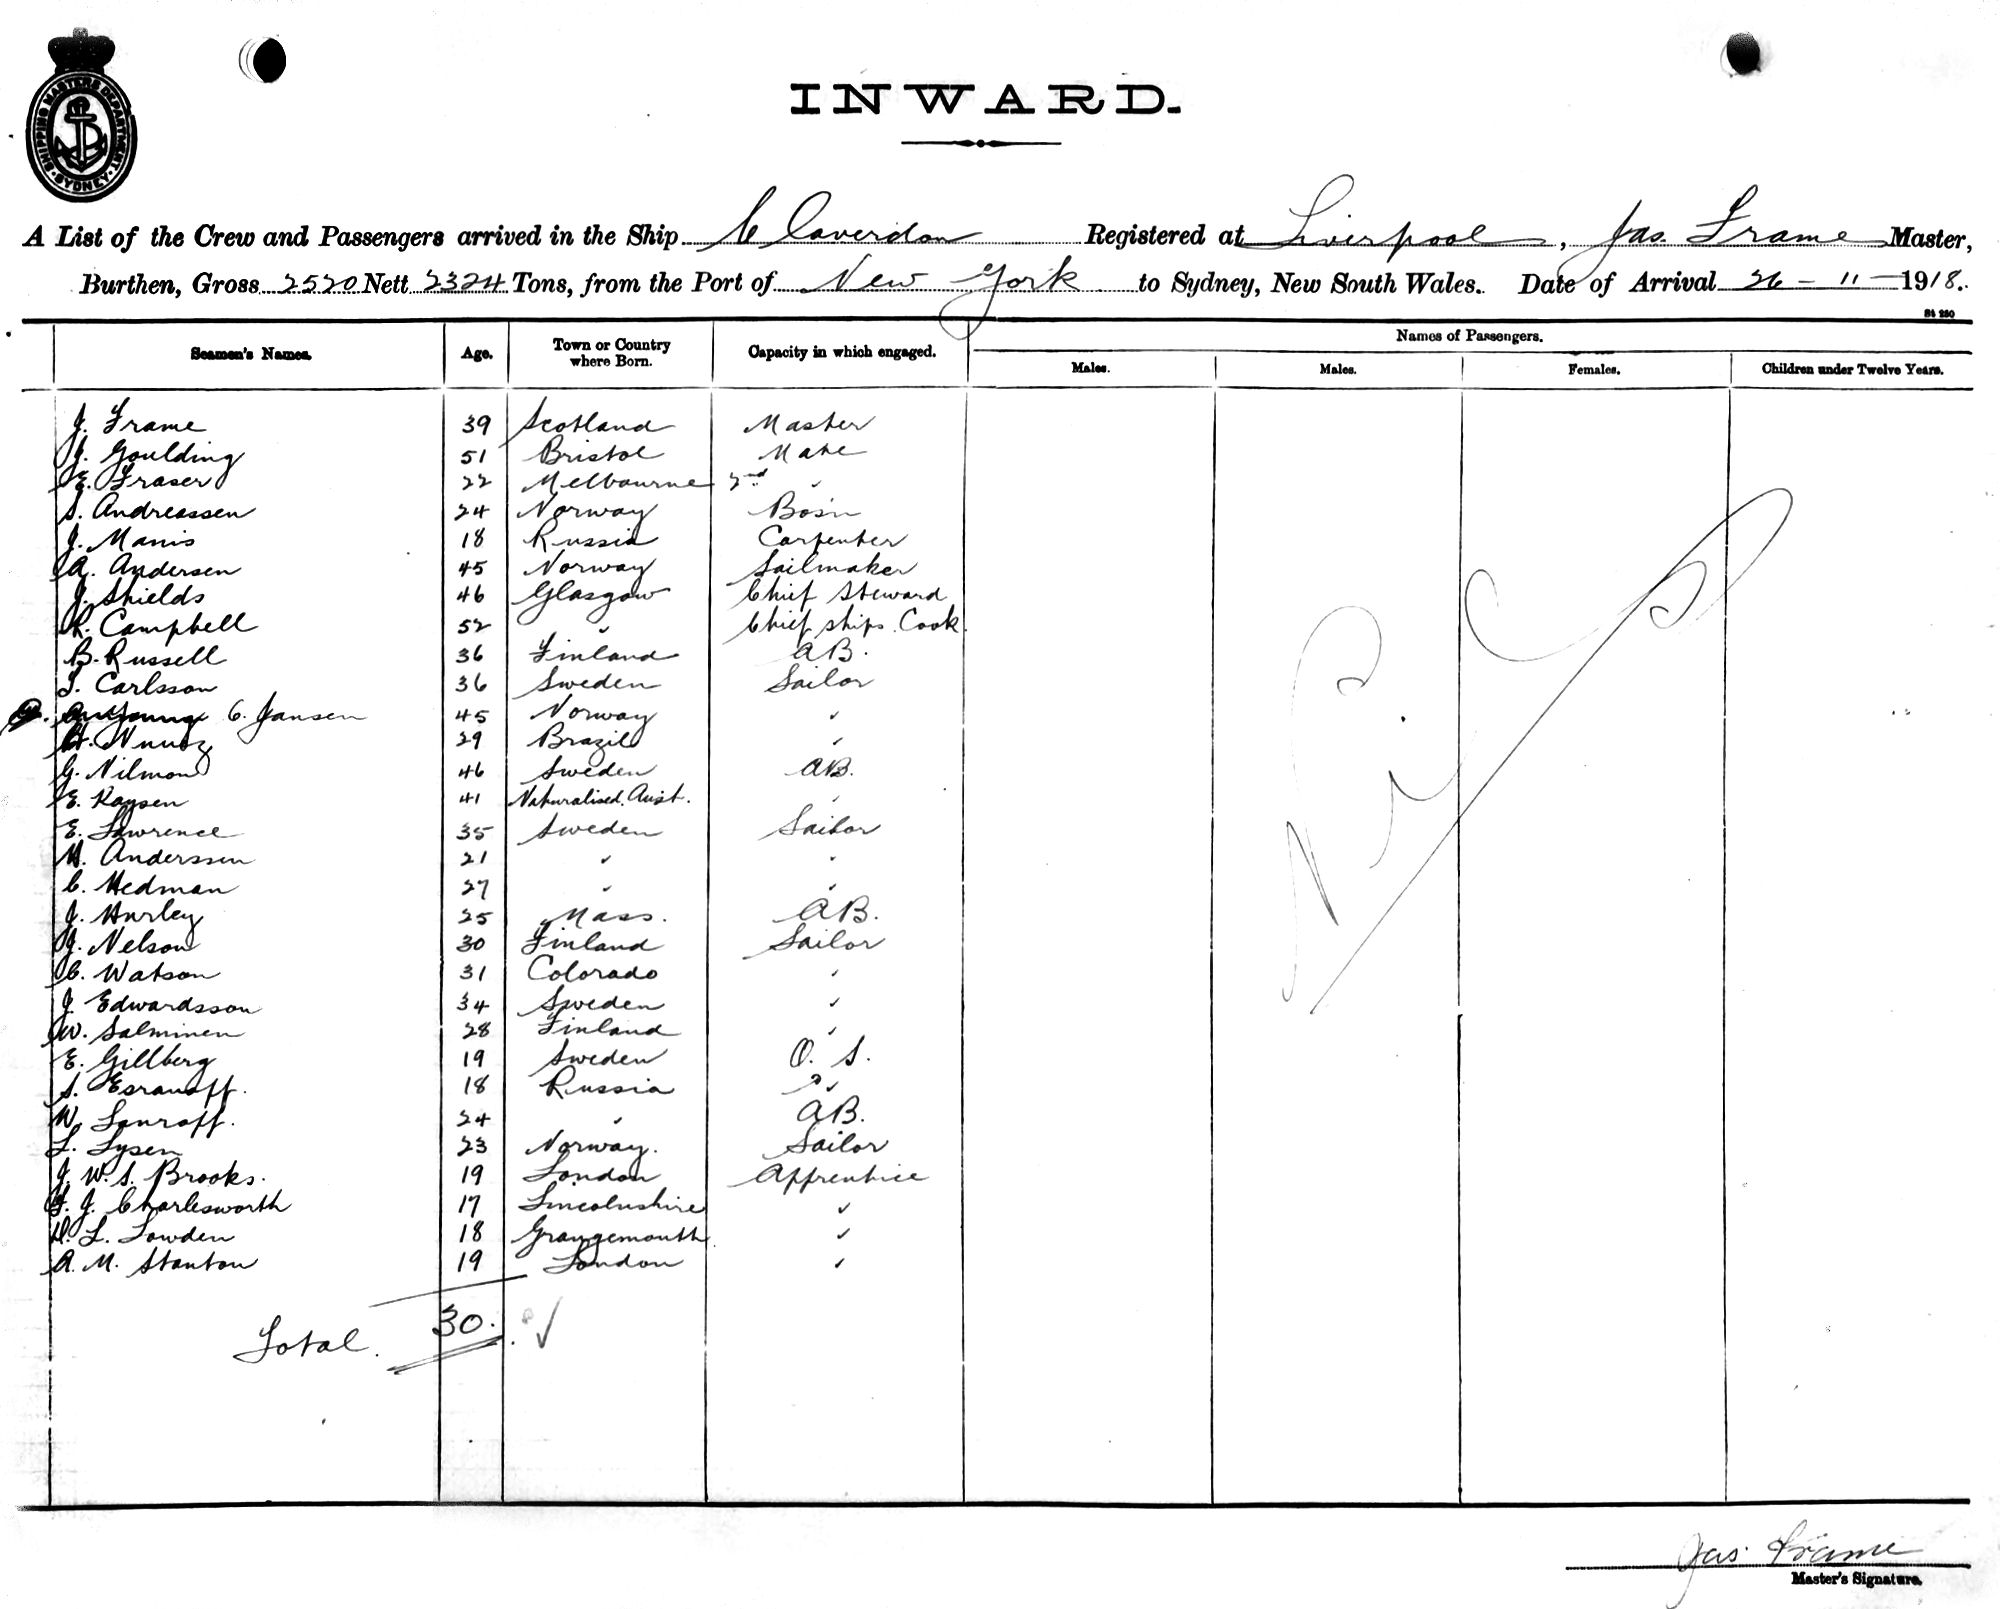 SHIPPING MASTERS DEPARTMENT SYDNEY
INWARD.
A List of the Crew and Passengers arrived in the Ship Claverdon Registered at Liverpool, Jas. Frame Master,
Burthen, Gross 2520 Nett 2324 Tons, from the Port of New York to Sydney, New South Wales. Date of Arrival 26-11-1918.
St 280
Seamen's Names. Age. Town or Country where Born. Capacity in which engaged. Names of Passengers.
Males. Males. Females. Children under Twelve Years.
J. Frame 39 Scotland Master
J. Goulding 51 Bristol Mate
E. Fraser 22 Melbourne 2nd "
S. Andreassen 24 Norway Bosn
J. Manis 18 Russia Carpenter
A. Andersen 45 Norway Sailmaker
J. Shields 46 Glasgow Chief Steward
R. Campbell 52 " Chief ships Cook.
B. Russell 36 Finland AB.
Carlsson 36 Sweden Sailor
C. Jansen 45 Norway "
Nunoz 29 Brazil "
G. Nilmon 46 Sweden AB.
E. Kaysen 41 Naturalised. Aust. "
E. Lawrence 35 Sweden Sailor
H. Anderssen 21 " "
C. Hedman 27 " "
J. Hurley 25 Mass. AB.
J. Nelson 30 Finland Sailor
C. Watson 31 Colorado "
J. Edwardsson 34 Sweden "
W. Salminen 28 Finland "
E. Gillberg 19 Sweden O. S.
S. Esranoff. 18 Russia "
W. 24 " AB.
L. Lysen 23 Norway. Sailor
J. W. S. Brooks. 19 London Apprentice
F. J. Charlesworth 17 Lincolnshire "
D. L. Lowden 18 Grangemouth "
A. M. Stanton 19 London "
Total. 30.
Jas. Frame
Master's Signature.